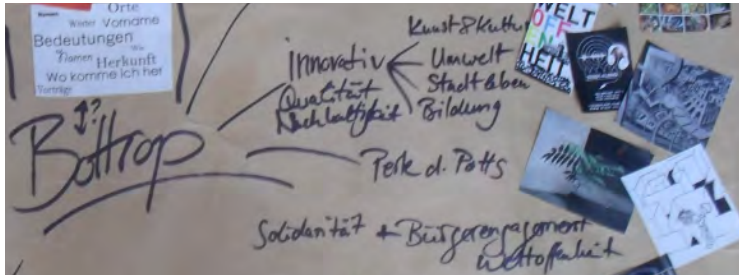 Orte
Wörter Vorname
Bedeutungen
Namen Wie
Herkunft
Wo komme ich her
Vorträge
?
Bottrop
innovativ
Qualität
Nachhaltigkeit
Kunst & Kultur
Umwelt
Stadtleben
Bildung
Perle d. Potts
Solidarität + Bürgerengagement
Weltoffenheit
WELT
OFF
EN
HEIT